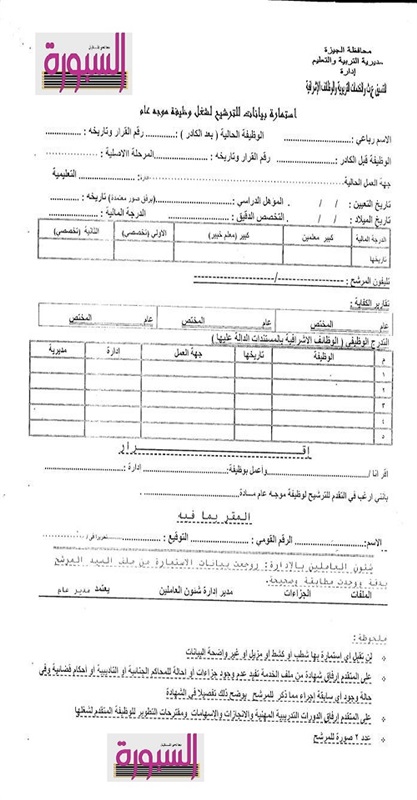 السبورة
محافظة الجيزة
مديرية التربية والتعليم
إدارة
استمارة بيانات للترشيح لشغل وظيفة موجه عام
الاسم رباعي : .............. الوظيفة الحالية ( بعد الكادر ) : .............. رقم القرار وتاريخه : ..............
الوظيفة قبل الكادر : .............. رقم القرار وتاريخه : .............. المرحلة الاصلية : ..............
جهة العمل الحالية: .............. ادارة: .............. التعليمية
تاريخ التعيين : / / . المؤهل الدراسي: .............. (يرفق صور معتمدة) تاريخه : ..............
تاريخ الميلاد : / / التخصص الدقيق : .............. الدرجة المالية : ..............
الدرجة المالية كبير معلمين كبير (معلم خبير) الاولي (تخصصي) الثانية (تخصصي)
تاريخها
تليفون المرشح : -----------------/-----------------
تقارير الكفاية :
عام المختص عام المختص عام المختص
التدرج الوظيفي ( الوظائف الاشرافية بالمستندات الدالة عليها )
م الوظيفة تاريخها جهة العمل ادارة مديرية
١
٢
٣
٤
٥
إقـــــرار
اقر انا /..............واعمل بوظيفة:.............. ادارة :..............
بانني ارغب في التقدم للترشيح لوظيفة موجه عام مــادة..............
المقر بما فيه
الاسم:.............. الرقم القومي : .............. التوقيع : ..............
شئون العاملين بالإدارة : روجعت بيانات الاستمارة من ملف السيد المرشح
بدقة ووجدت مطابقة وصحيحة.
الملفات الجزاءات مدير ادارة شئون العاملين يعتمد مدير عام
ملحوظة :
لن تقبل اي استمارة بها شطب او كشط او مزيل او غير واضحة البيانات
على المتقدم إرفاق شهادة من ملف الخدمة تفيد عدم وجود جزاءات او احالة للمحاكم الجنائية او التاديبية أو أحكام قضائية وفي
حالة وجود أي سابقة إجراء مما ذكر للمرشح يوضح ذلك تفصيلا في الشهادة
على المتقدم إرفاق الدورات التدريبية المهنية والانجازات والاسهامات ومقترحات التطوير للوظيفة المتقدم لشغلها
عدد ٢ صورة للمرشح
السبورة